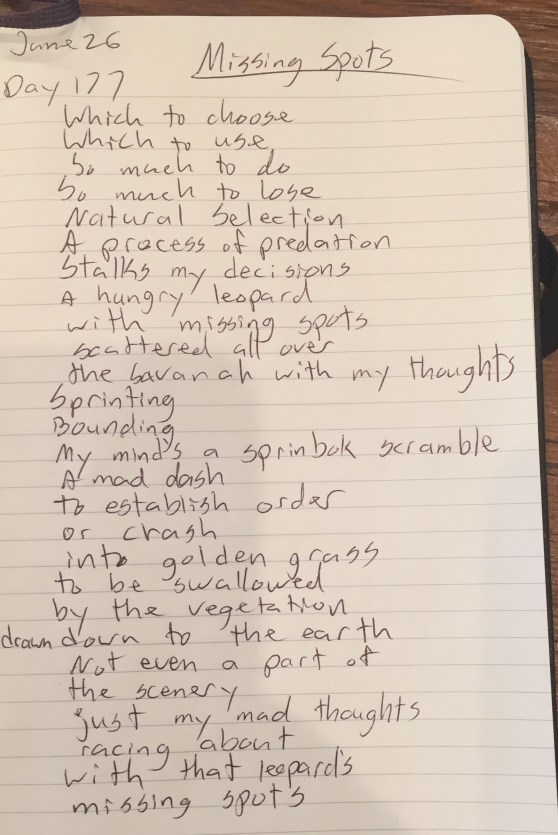 June 26
Missing Spots
Day 177
Which to choose
Which to use
So much to do
So much to lose
Natural Selection
A process of predation
Stalks my decisions
A hungry leopard
with missing spots
scattered all over
the savanah with my thoughts
Sprinting
Bounding
My mind's a sprinbok scramble
A mad dash
to establish order
or crash
into golden grass
to be swallowed
by the vegetation
drawn down to the earth
Not even a part of
the scenery
just my mad thoughts
racing about
with that leopard's
missing spots